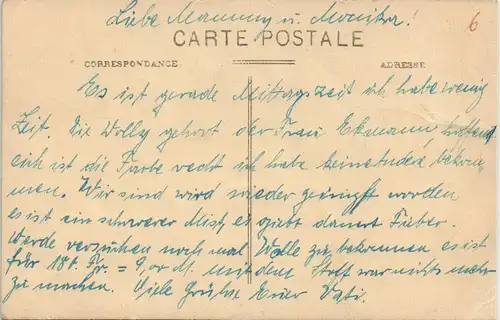 Liebe Mammy u. Monika! 6
CARTE POSTALE
CORRESPONDANCE. ADRESSE
Es ist gerade Mittagszeit ich habe wenig
Zeit. Die Wolly gehört der Frau Ekmann, hoffent
lich ist die Farbe recht ich habe keine andere bekom-
men. Wir sind wird wieder geimpft worden
es ist ein schwerer Mist, es giebt dauert Fieber.
Werde versuchen noch mal Wolle zu bekommen es ist
für 180 Fr. = 9,00 M. mit dem Stoff war nichts mehr
zu machen. Viele Grüße Euer Vati.